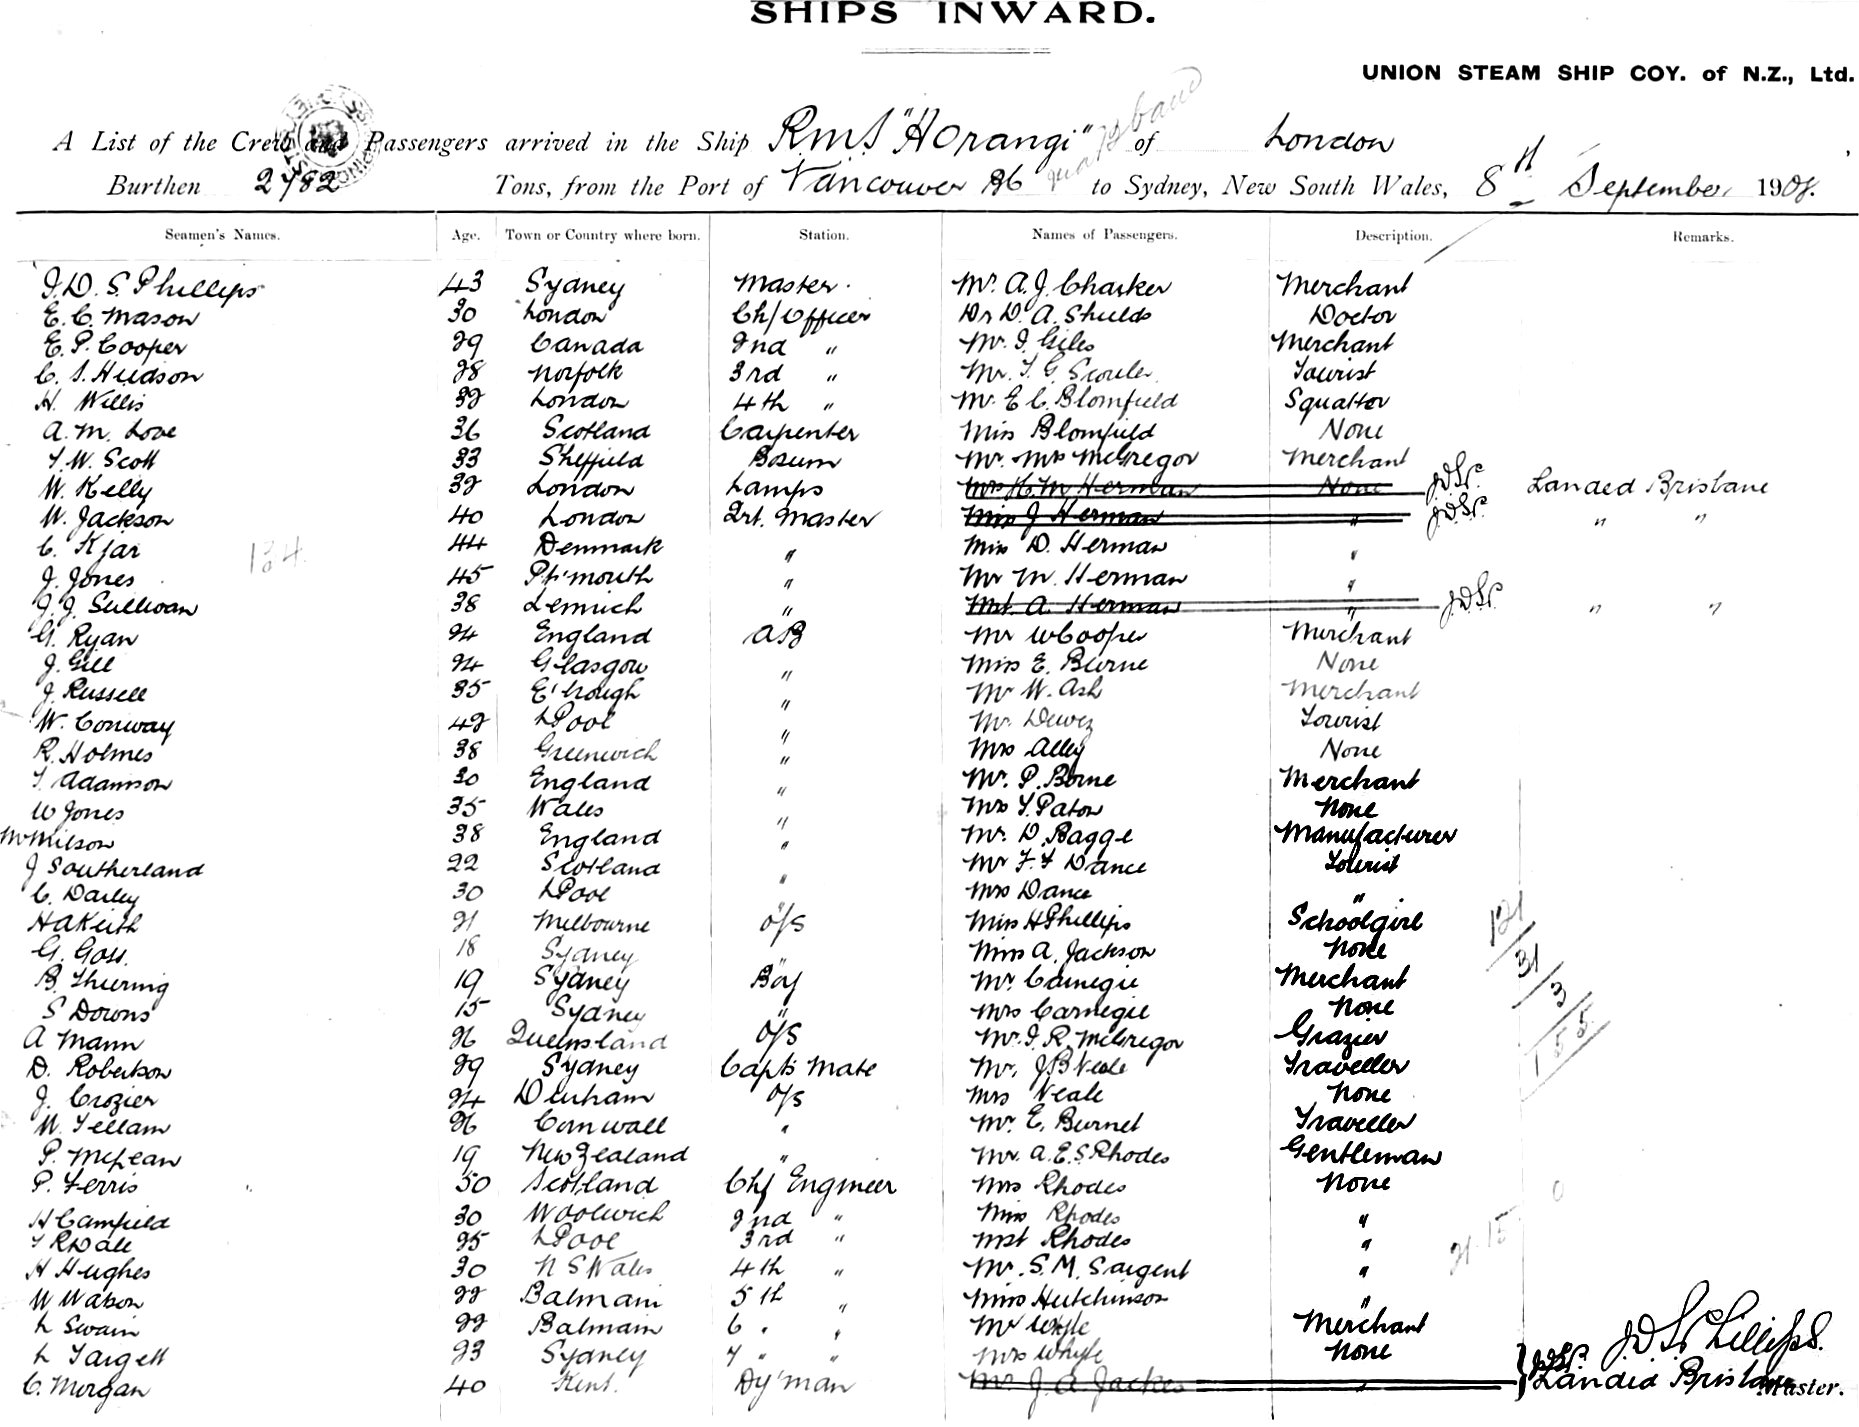 SHIPS INWARD.
UNION STEAM SHIP COY. of N.Z., Ltd.
A List of the Crew and Passengers arrived in the Ship R.M.S "AOrangi" of London
Burthen 2782 Tons, from the Port of Vancouver BC to Sydney, New South Wales, 8th September 1908.
Seamen's Names. Age. Town or Country where born. Station. Names of Passengers. Description. Remarks.
J.D.S. Phillips 43 Sydney Master. Mr. A.J. Charker Merchant
E.C. Mason 30 London Ch/Officer Dr D.A. Shields Doctor
E.P. Cooper 29 Canada 2nd " Mr. J. Giles Merchant
C.S. Hudson 28 Norfolk 3rd " Mr. T.G. Scouler Tourist
H. Willis 32 London 4th " Mr. E C. Blomfield Squattor
A.M. Love 36 Scotland Carpenter Miss Blomfield None
T.W. Scott 33 Sheffield Bosum Mr. Mrs McGregor Merchant
W. Kelly 32 London Lamps Mrs H.M Herman None J.D.S.P. Landed Brisbane
W. Jackson 40 London Qrt. Master Miss J Herman " J.D.S.P. " "
C. Kjar 134 44 Denmark " Miss D. Herman "
J. Jones 45 Pt'mouth " Mr M. Herman "
J.J. Sullivan 38 " Mst. A. Herman " J.D.S.P. " "
G. Ryan 24 England AB Mr W Cooper Merchant
J. Gill 24 Glasgow " Miss E. Burne None
J. Russell 35 " Mr W. Ash Merchant
W. Conway 42 LPool " Mr. Dewez Tourist
R. Holmes 38 Greenwich " Mrs Alley None
T. Adamson 30 England " Mr. P. Borne Merchant
W Jones 35 Wales " Mrs T. Paton None
38 England " Mr. D. Bagge Manufacturer
J Southerland 22 Scotland " Mr F.F Dance Tourist
C. Dailey 30 LPool " Mrs Dance "
H A Keith 21 Melbourne O/S Miss H Phillips Schoolgirl 121
G. Goss. 18 Sydney " Miss A. Jackson None 31
B. Thiering 19 Sydney Boy Mr. Carnegie Merchant 3
S Downs 15 Sydney " Mrs Carnegie None 155
A Mann 26 Queensland O/S Mr. J.R. McGregor Grazier
D. Robertson 29 Sydney Capts Mate Mr. J.B Neale Traveller
J. Crozier 24 Durham O/S Mrs Neale None
W. Tellam 26 Cornwall " Mr. E. Burnet Traveller
P. McLean 19 New Zealand " Mr. A.E.S. Rhodes Gentleman
P. Ferris 50 Scotland Chf Engineer Mrs Rhodes None
H Camfield 30 Woolwich 2nd " Miss Rhodes "
T R Dale 25 LPool 3rd " Mst Rhodes "
H Hughes 30 N S Wales 4th " Mr. S.M. Sargent "
W Watson 22 Balmain 5th " Miss Hutchinson "
L Swain 22 Balmain 6 " " Mr Whyte Merchant J.D.S. Phillips.
L Targett 23 Sydney 7 " " Mrs Whyte None J.D.S.P.
C. Morgan 40 Kent. Dy'man Mr. J.A. Jackes " Landed Brisbane Master.